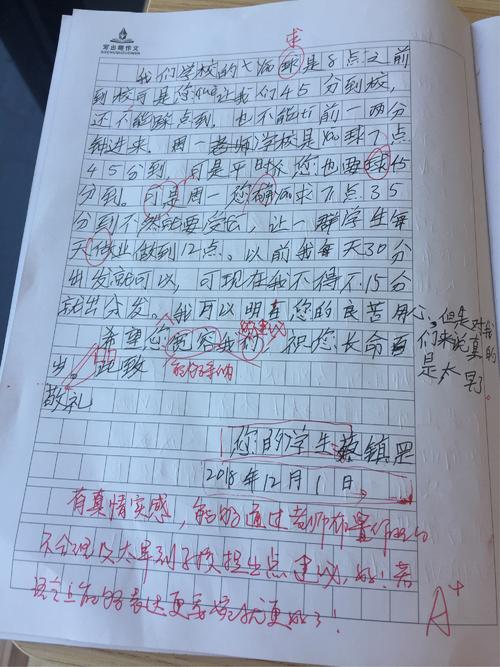 写出趣作文
求
我们学校的要球是8点之前
到校可是您却让我们45分到校,
还不能踩点到,也不能提前一两分
钟进来。周一老师学校是要球7点
45分到,可是平时你您也要球45
分到。可是周一您确要求7点35
分到不然就要受罚,让一群学生每
天做业做到12点。以前我每天30分
出发就可以,可现在我不得不15分
就出发。我可以明白您的良苦用心,但是对
我们来说真的是太早
希望您宽容我们,祝您长命百
岁。此致
的建议
能够采纳
敬礼
您的学生
2018年12月1日
有真情实感,能够通过老师布置作业的
不合理及太早到学校提出点建议,好!若
语言上能够表达更委婉就更好了!
A+